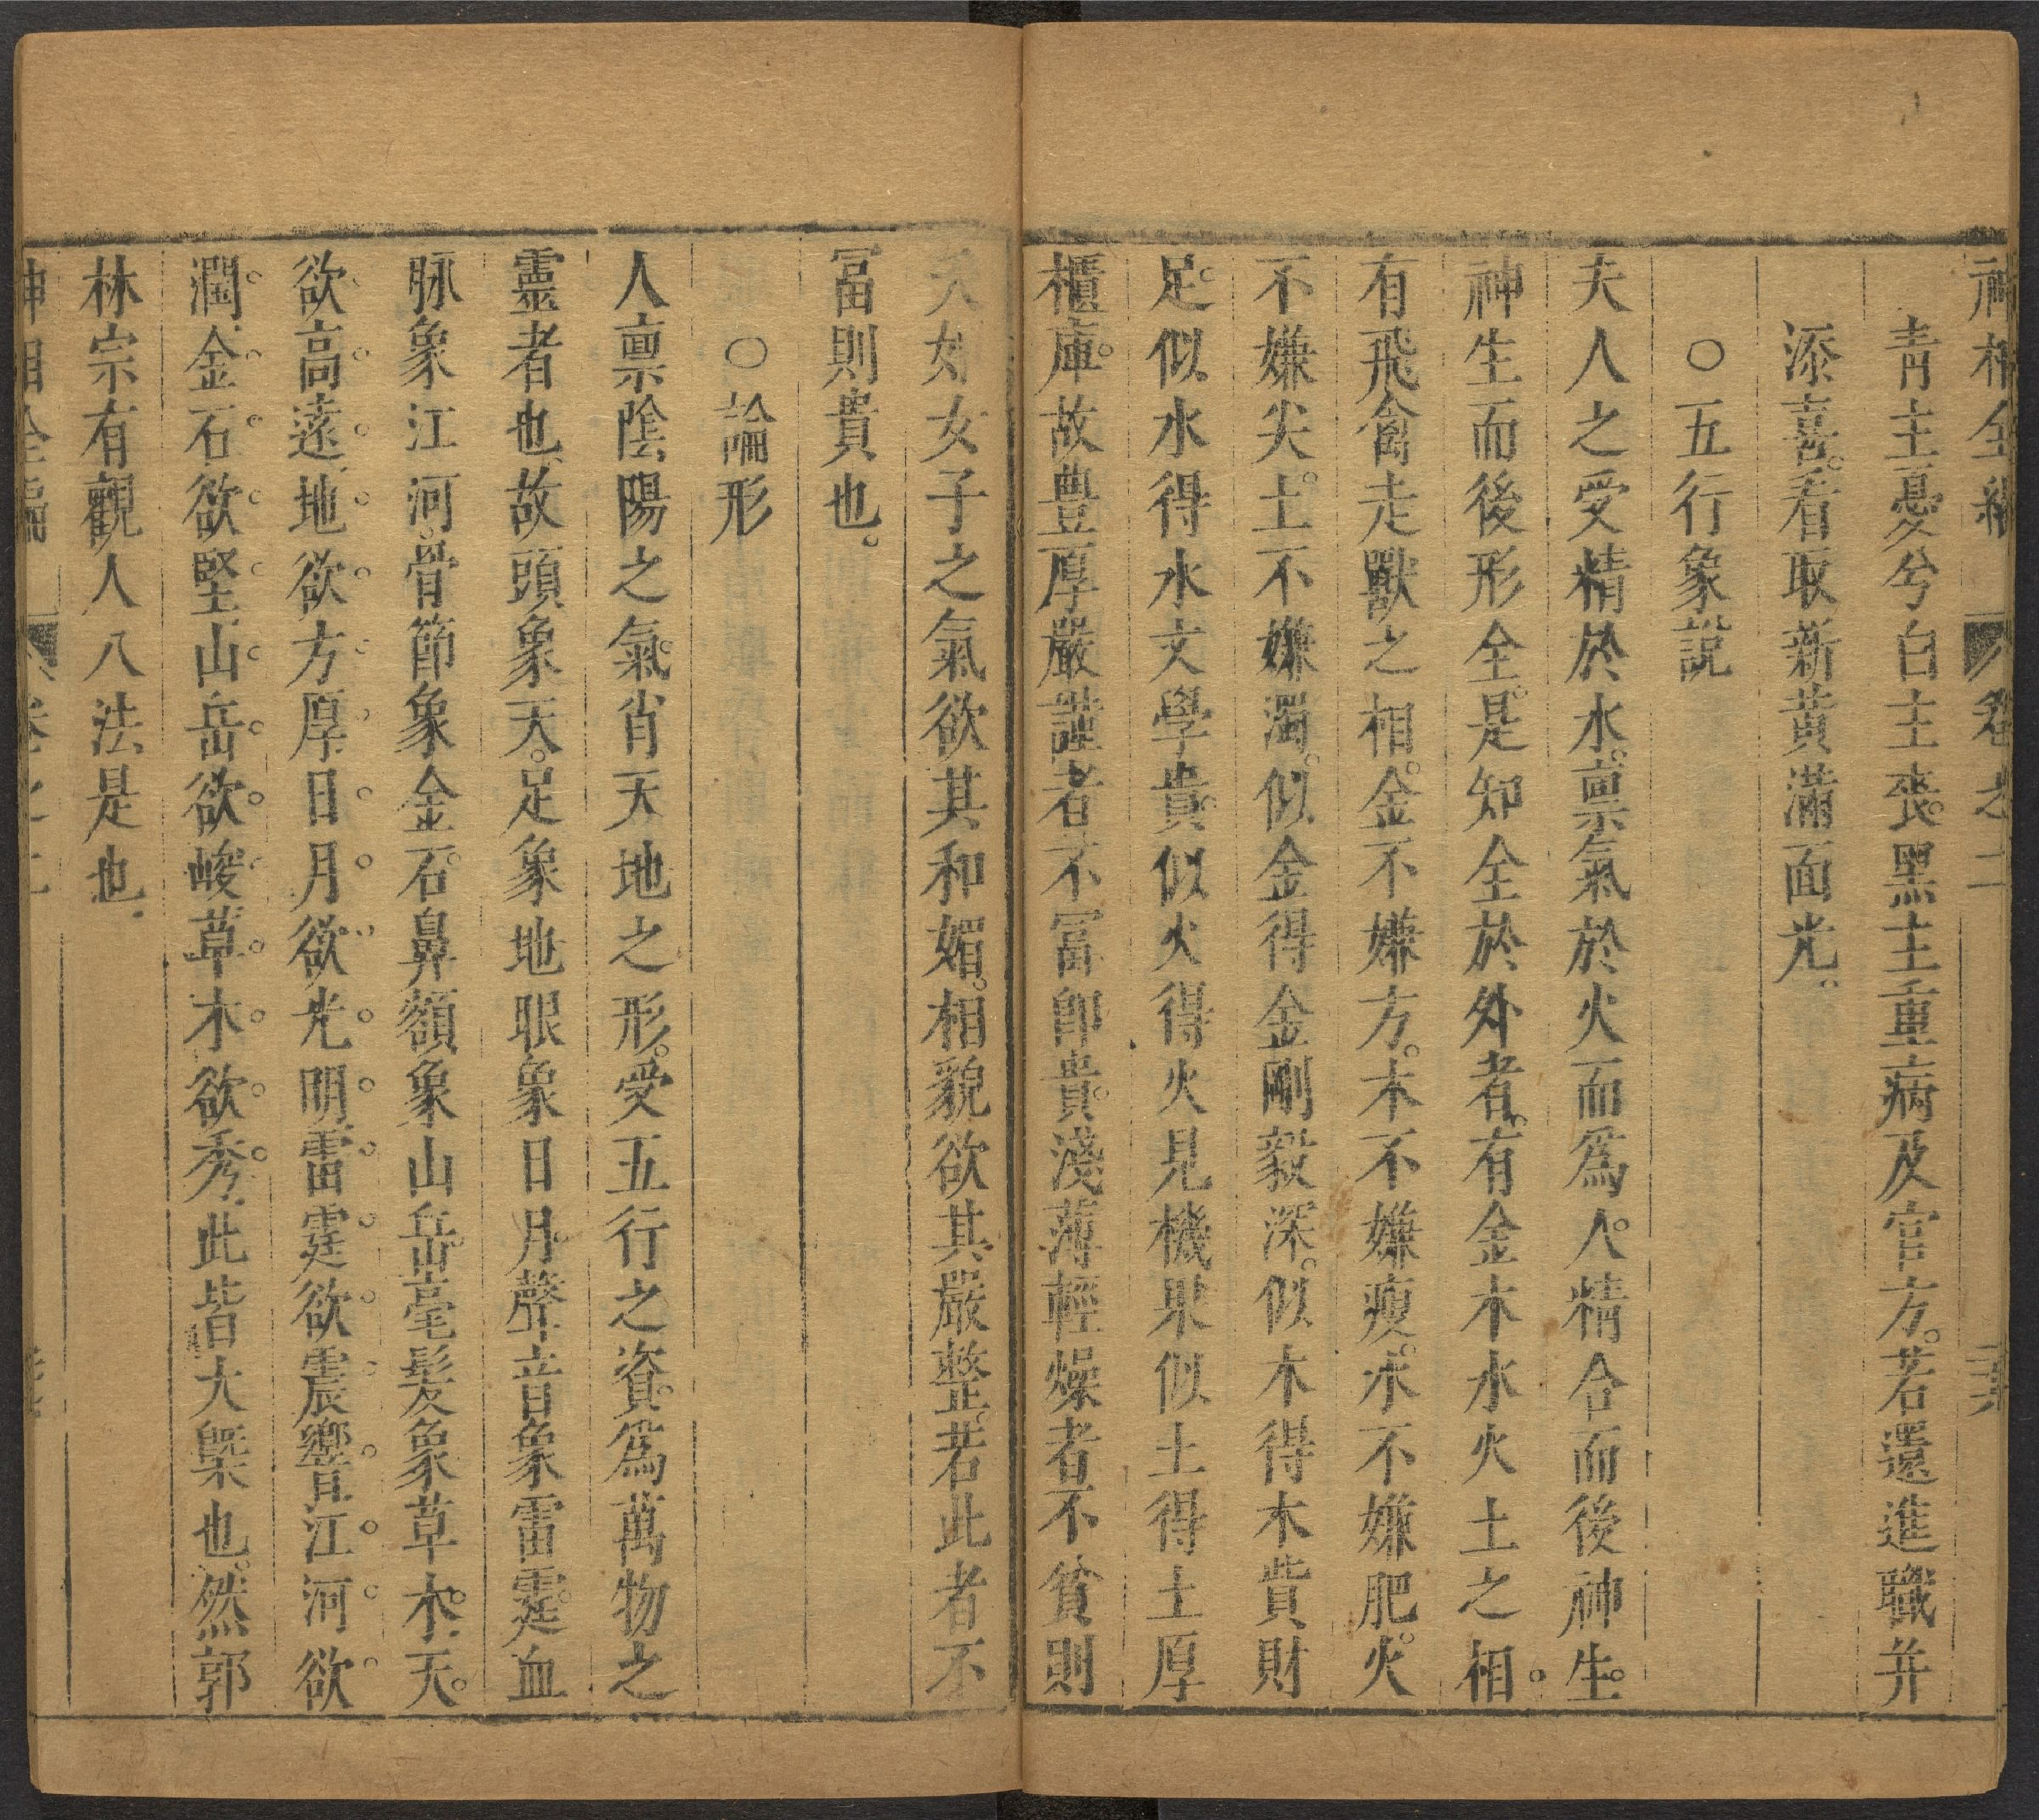 神相全編 卷之二
青主憂兮白主喪。黑主重病及官方。若還進職并
添喜。看取新黃滿面光。
○五行象説
夫人之受精於水。禀氣於火而爲人。精合而後神生。
神生而後形全。是知全於外者。有金木水火土之相。
有飛禽走獸之相。金不嫌方。木不嫌瘦。水不嫌肥。火
不嫌尖。土不嫌濁。似金得金剛毅深。似木得木貲財
足。似水得水文學貴。似火得火見機果似土得土厚
櫃庫。故豊厚嚴謹者不冨卽貴。淺薄輕燥者不貧則
夭如女子之氣欲其和媚。相貌欲其嚴整。若此者不
冨則貴也。
○論形
人禀陰陽之氣。肖天地之形。受五行之資。爲萬物之
靈者也、故頭象天。足象地眼象日月。聲音象雷霆。血
脉象江河。骨節象金石。鼻額象山岳。毫髮象草木。天
欲高遠、地欲方厚日月欲光明、雷霆欲震響江河欲
潤、金石欲堅、山岳欲峻草木欲秀、此皆大槩也。然郭
林宗有觀人八法是也、
神相全編 卷之二